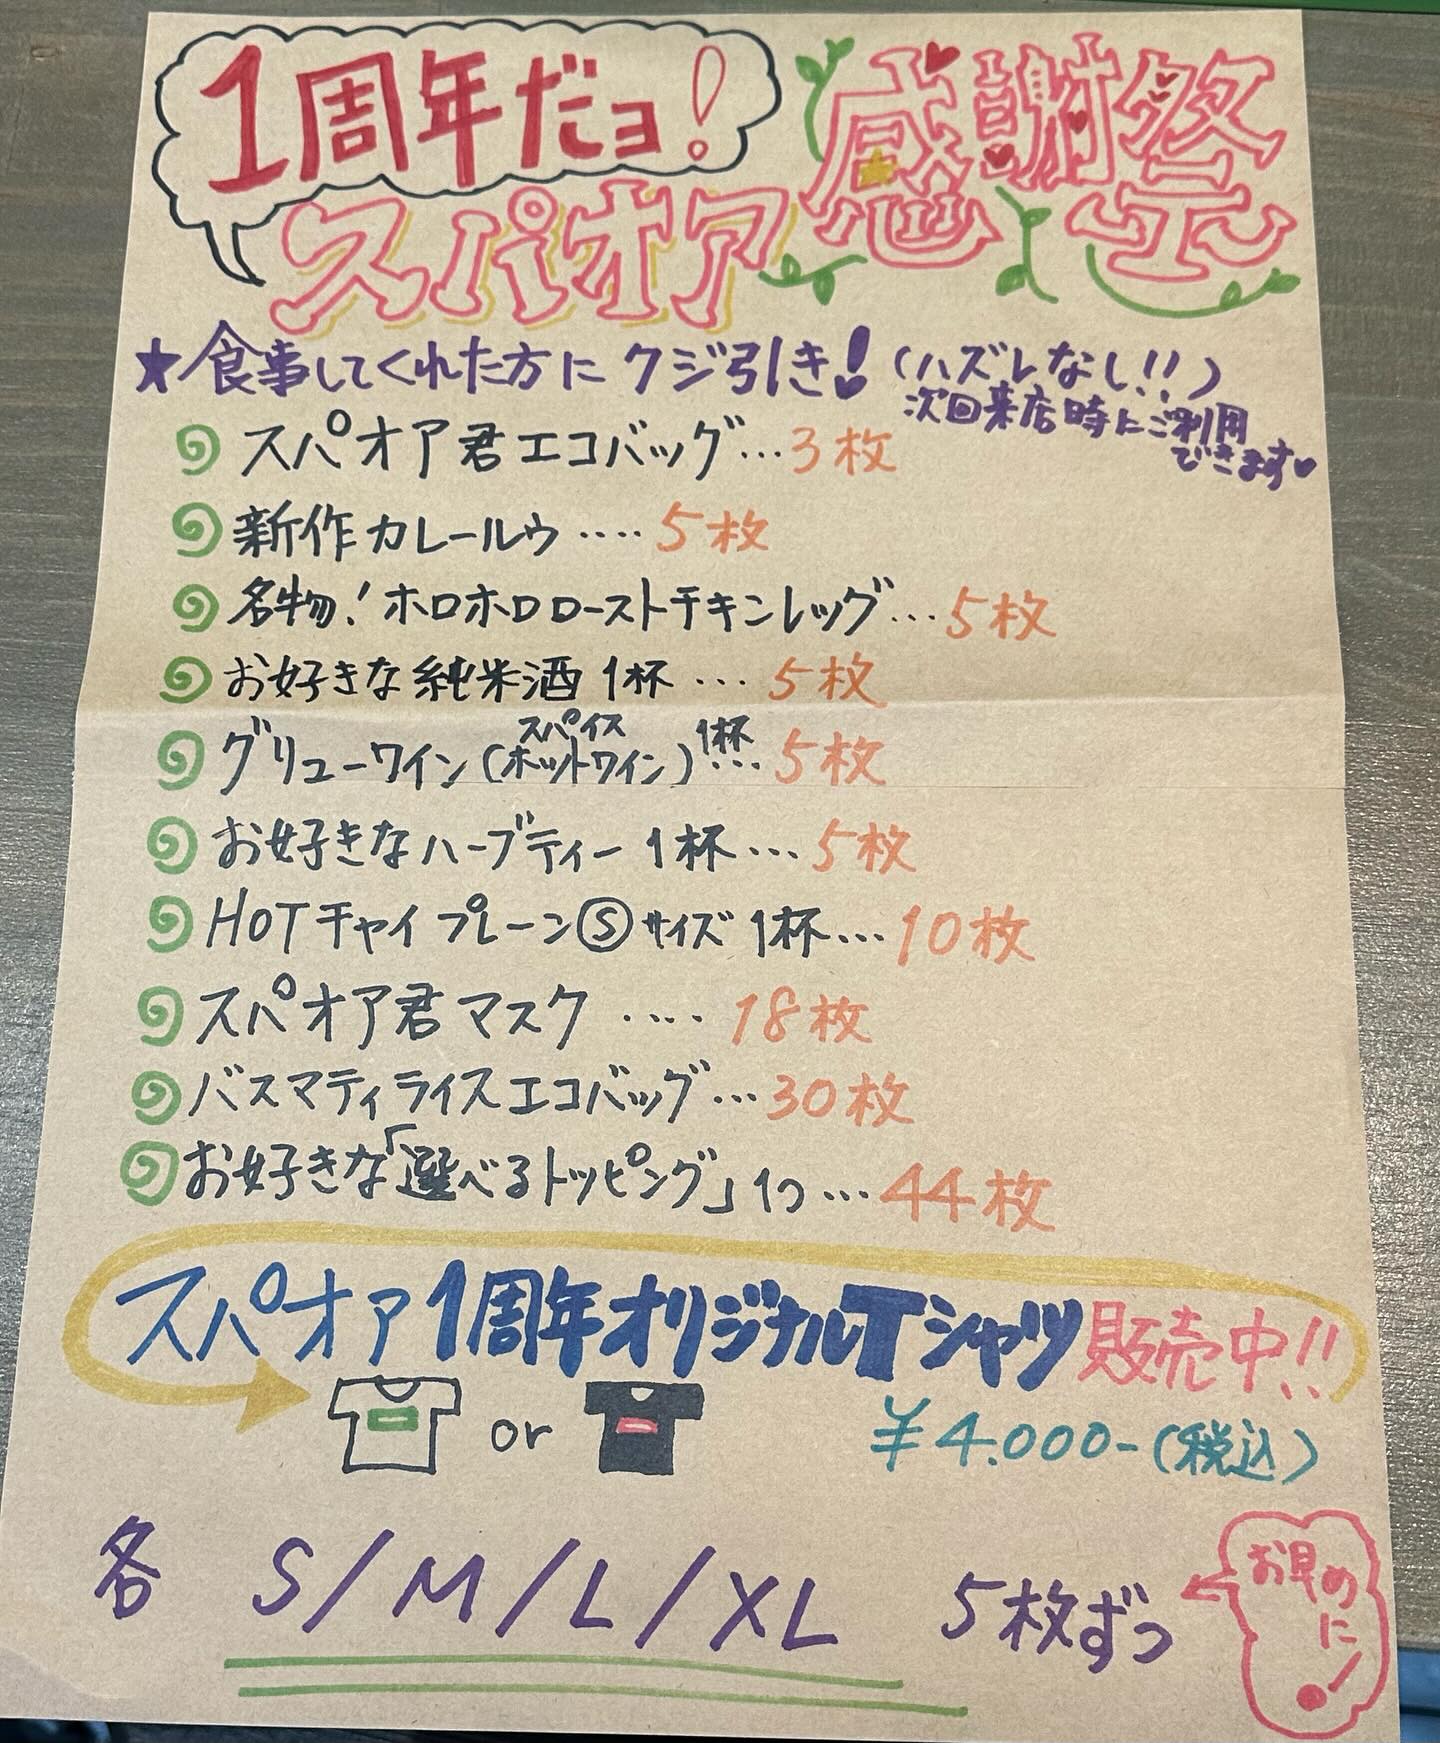 1周年だョ!
スパオア感謝祭
★食事してくれた方に クジ引き! (ハズレなし!!)
次回来店時にご利用
できます♥
スパオア君エコバッグ…3枚
新作カレールゥ‥‥5枚
名物!ホロホロローストチキンレッグ…5枚
お好きな純米酒 1杯…5枚
グリューワイン(スパイスホットワイン)1杯…5枚
お好きなハーブティー 1杯…5枚
HOTチャイ プレーンⓈサイズ 1杯…10枚
スパオア君マスク‥‥18枚
バスマティライスエコバッグ…30枚
お好きな「選べるトッピング」1つ…44枚
スパオア1周年オリジナルTシャツ販売中!!
or ¥4.000-(税込)
各 S/M/L/XL 5枚ずつ
お早めに!